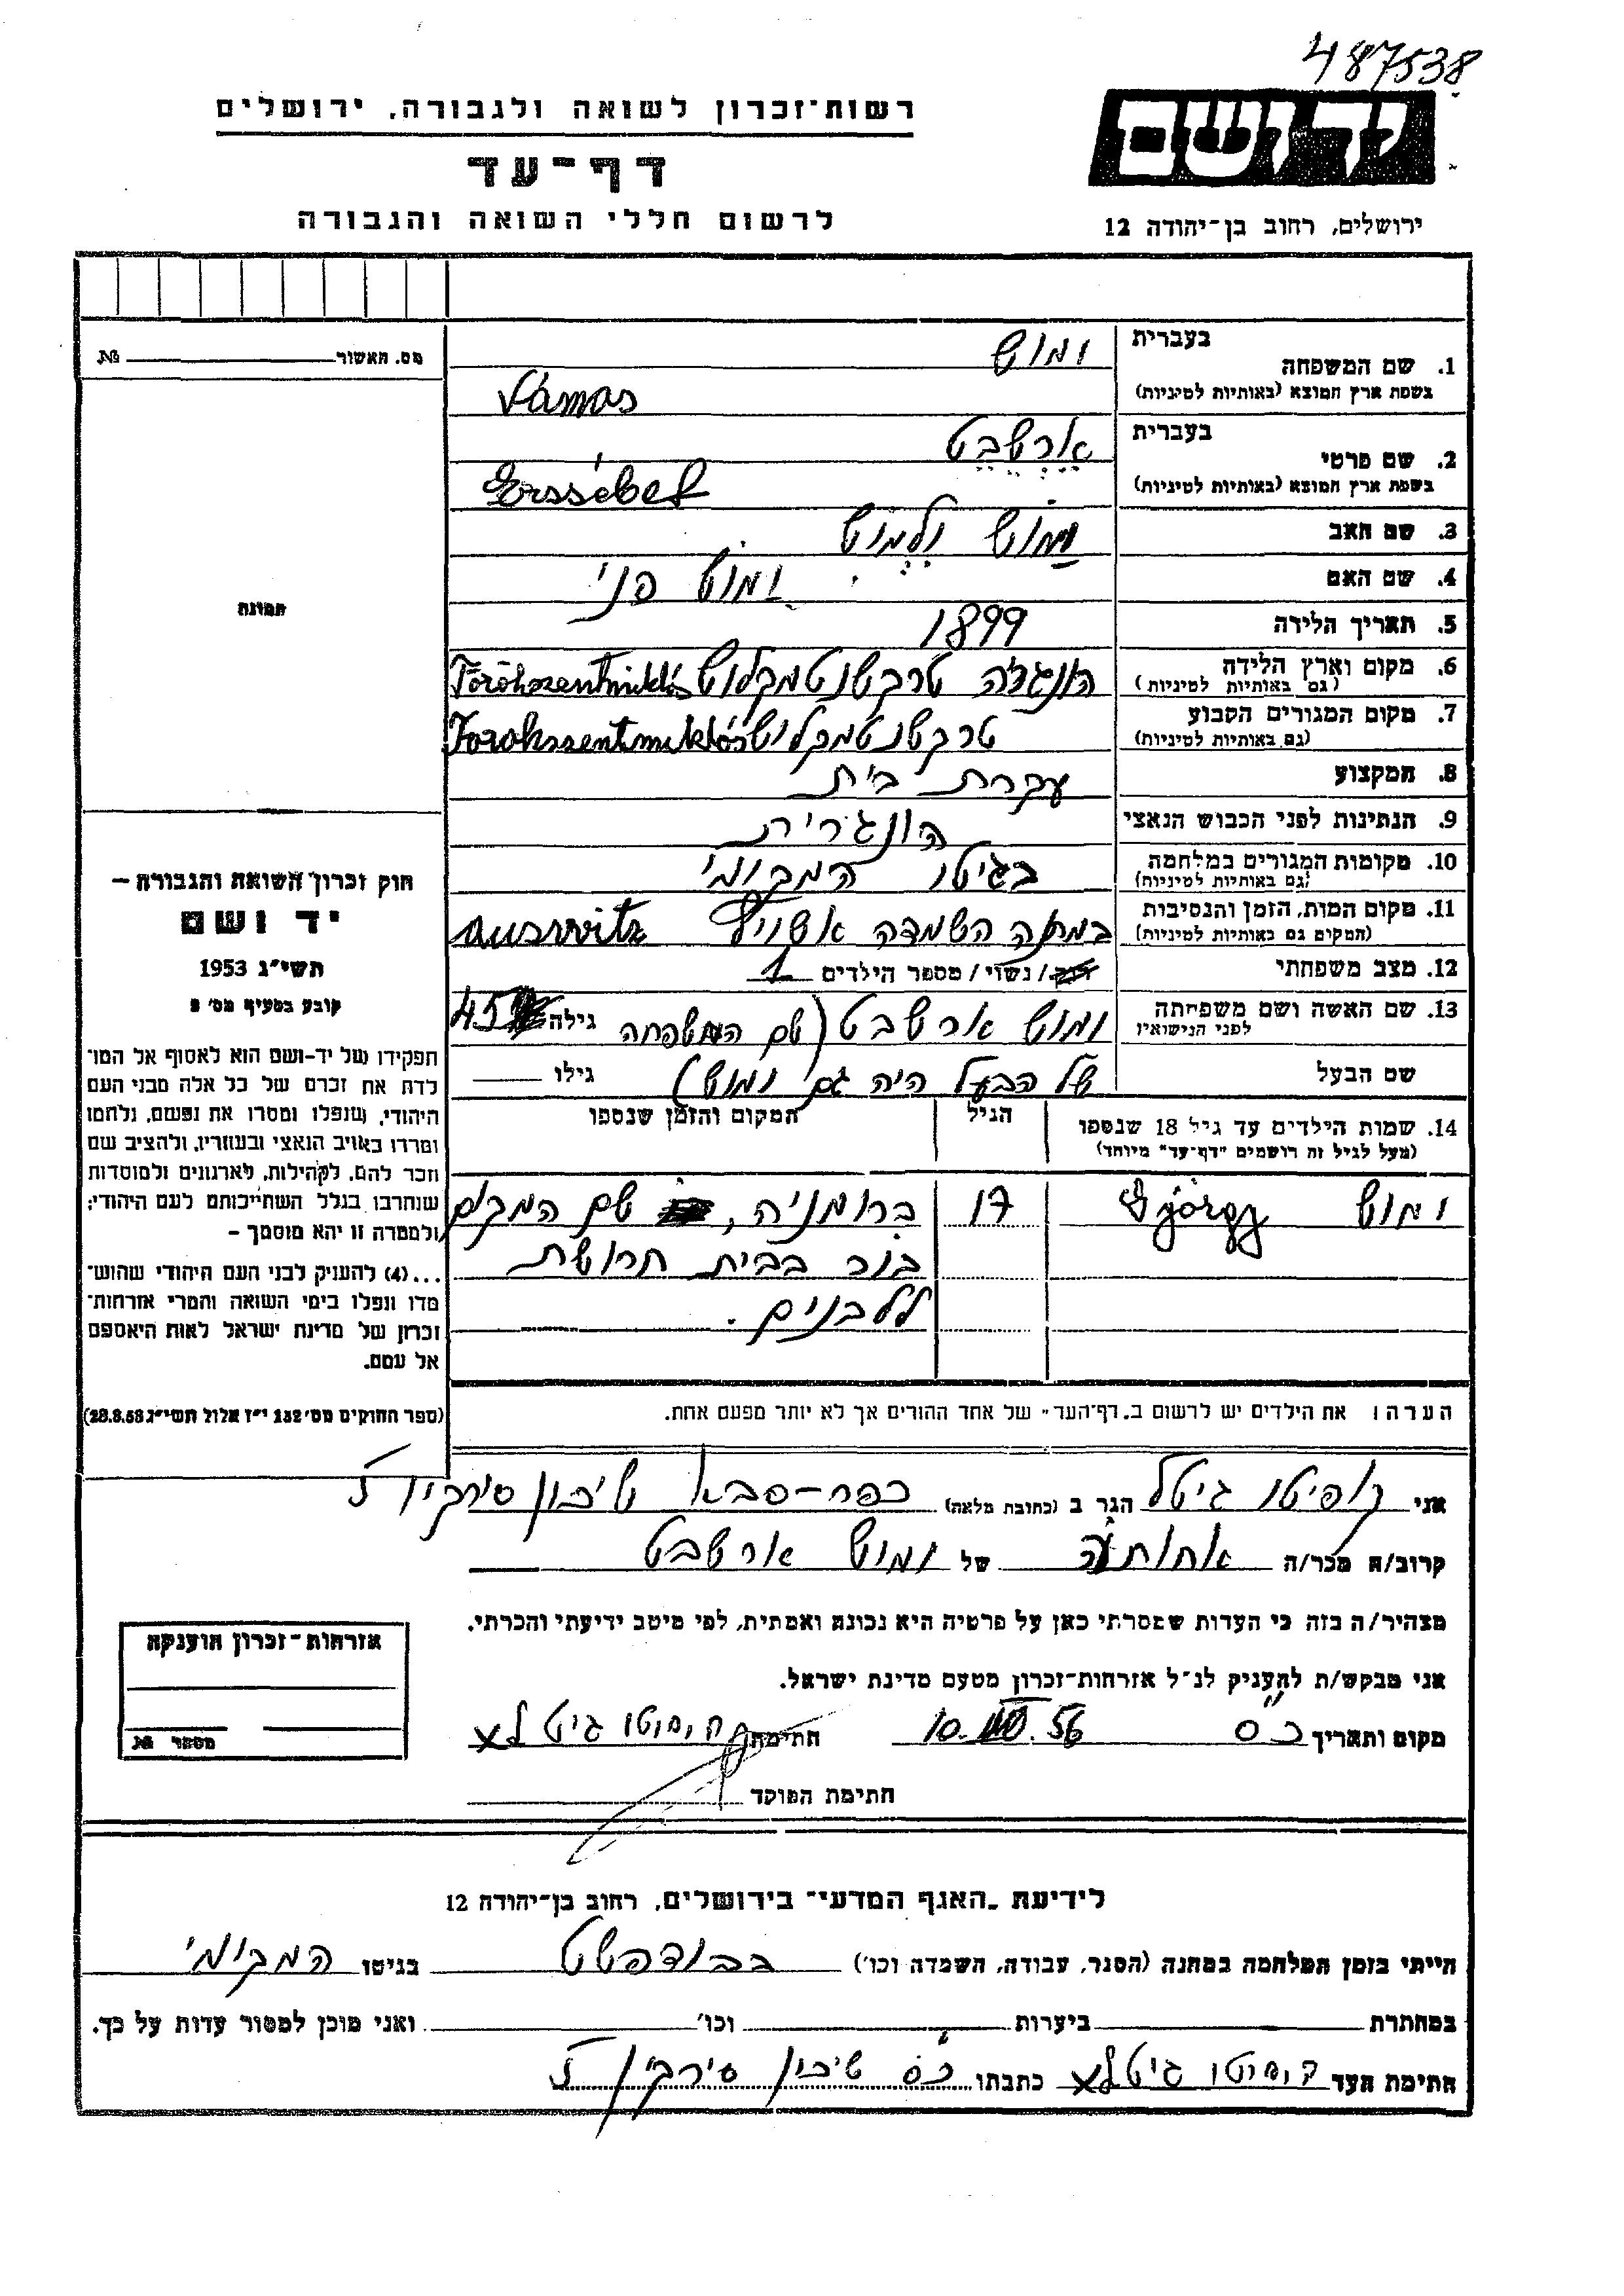 487538
יד ושם
רשות־זכרון לשואה ולגבורה, ירושלים
דף־עד
לרשום חללי השואה והגבורה
ירושלים, רחוב בן־יהודה 12
מס. האשור № 
תמונה
חוק זכרון השואה והגבורה –
יד ושם
תשי״ג 1953
קובע בסעיף מס׳ 2
תפקידו של יד-ושם הוא לאסוף אל המו־
לדת את זכרם של כל אלה מבני העם
היהודי, שנפלו ומסרו את נפשם, נלחמו
ומרדו באויב הנאצי ובעוזריו, ולהציב שם
וזכר להם, לקהילות, לארגונים ולמוסדות
שנחרבו בגלל השתייכותם לעם היהודי;
ולמטרה זו יהא מוסמך –
...(4) להעניק לבני העם היהודי שהוש־
מדו ונפלו בימי השואה והמרי אזרחות־
זכרון של מדינת ישראל לאות היאספם
אל עמם.
(ספר החוקים מס׳ 132 י״ז אלול תשי״ג 28.8.53)
1. שם המשפחה בעברית ומוש
בשפת ארץ המוצא (באותיות לטיניות) Vámos
2. שם פרטי בעברית ארשבט
בשפת ארץ המוצא (באותיות לטיניות) Erssébet
3. שם האב ומוש וילמוש
4. שם האם ומוש פני
5. תאריך הלידה 1899
6. מקום וארץ הלידה הונגריה טרקשנטמקלוש Törökszentmiklós
(גם באותיות לטיניות)
7. מקום המגורים הקבוע טרקשנטמקלוש Törökszentmiklós
(גם באותיות לטיניות)
8. המקצוע עקרת בית
9. הנתינות לפני הכבוש הנאצי הונגרית
10. מקומות המגורים במלחמה בגיטו המקומי
(גם באותיות לטיניות)
11. מקום המות, הזמן והנסיבות במחנה השמדה אשויץ auswitz
(המקום גם באותיות לטיניות)
12. מצב משפחתי רוק/ נשוי/ מספר הילדים 1
13. שם האשה ושם משפחתה ומוש ארשבט (שם המשפחה גילה 45
לפני הנישואין
שם הבעל של הבעל היה גם ומוש) גילו
14. שמות הילדים עד גיל 18 שנספו הגיל המקום והזמן שנספו
(מעל לגיל זה רושמים "דף־עד" מיוחד)
ומוש György 17 ברומניה, שם המקום
בור בבית חרושת
ללבנים.
הערה: את הילדים יש לרשום ב„דף־העד״ של אחד ההורים אך לא יותר מפעם אחת.
אני גיטל הגר ב (כתובת מלאה) כפר-סבא שיכון סירקין 5
קרוב/ה מכר/ה אחותה של ומוש ארשבט
מצהיר/ה בזה כי העדות שמסרתי כאן על פרטיה היא נכונה ואמתית, לפי מיטב ידיעתי והכרתי.
אני מבקש/ת להעניק לנ״ל אזרחות־זכרון מטעם מדינת ישראל.
מקום ותאריך כ״ס 10. 56 חתימה גיטלא
חתימת הפוקד
אזרחות־זכרון הוענקה
מספר №
לידיעת „האגף המדעי״ בירושלים, רחוב בן־יהודה 12
הייתי בזמן המלחמה במחנה (הסגר, עבודה, השמדה וכו׳) בבודפשט בגיטו המקומי
במחתרת ביערות וכו׳ ואני מוכן למסור עדות על כך.
חתימת העד גיטלא כתבתו כ״ס שיכון סירקין 5